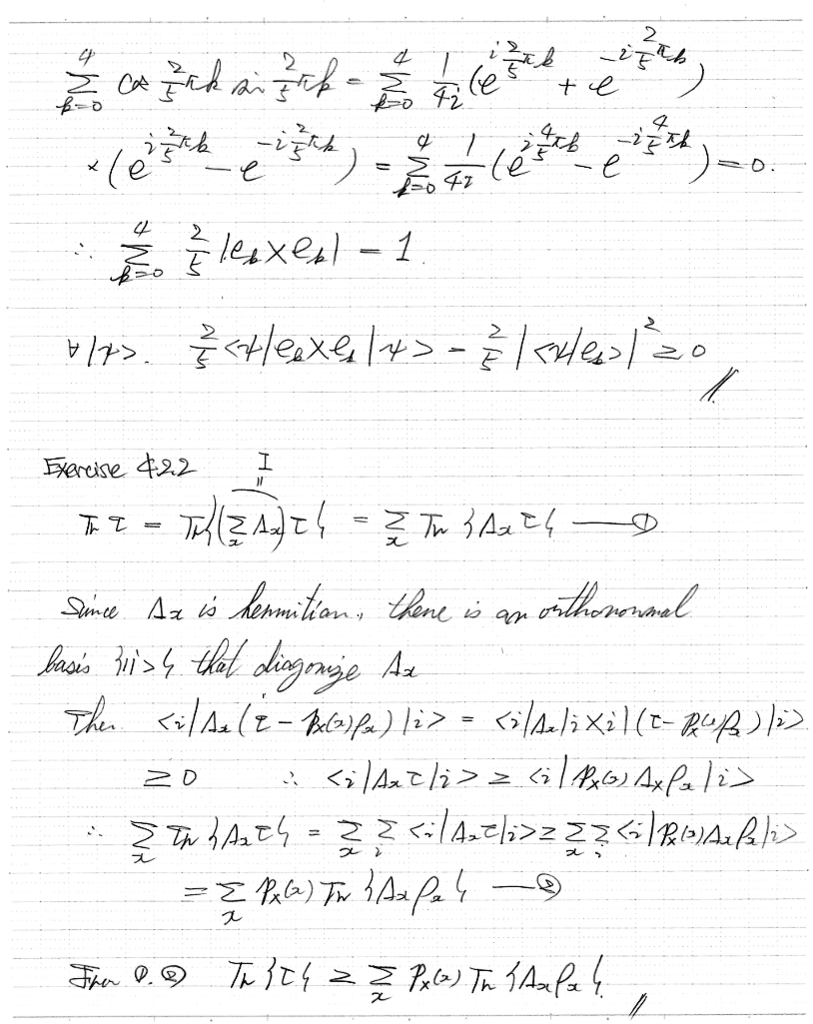 ∑_{k=0}^{4} cos 2/5 πk sin 2/5 πk = ∑_{k=0}^{4} 1/4i (e^{i 2/5 πk} + e^{-i 2/5 πk})
× (e^{i 2/5 πk} - e^{-i 2/5 πk}) = ∑_{k=0}^{4} 1/4i (e^{i 4/5 πk} - e^{-i 4/5 πk}) = 0.
∴ ∑_{k=0}^{4} 2/5 |e_k><e_k| = 1.
∀|ψ>. 2/5 <ψ|e_k><e_k|ψ> = 2/5 |<ψ|e_k>|^2 ≥ 0 //
Exercise 4.2.2 I
Tr τ = Tr{(∑_x Λx) τ} = ∑_x Tr {Λx τ} — ①
Since Λx is hermitian, there is an orthonormal
basis {|i>} that diagonize Λx
Then <i|Λx(τ - Px(x)ρx)|i> = <i|Λx|i><i|(τ - Px(x)ρx)|i>
≥ 0 ∴ <i|Λxτ|i> ≥ <i|Px(x)Λxρx|i>
∴ ∑_x Tr {Λxτ} = ∑_x ∑_i <i|Λxτ|i> ≥ ∑_x ∑_i <i|Px(x)Λxρx|i>
= ∑_x Px(x) Tr {Λxρx} — ②
From ①.② Tr {τ} ≥ ∑_x Px(x) Tr {Λxρx}. //